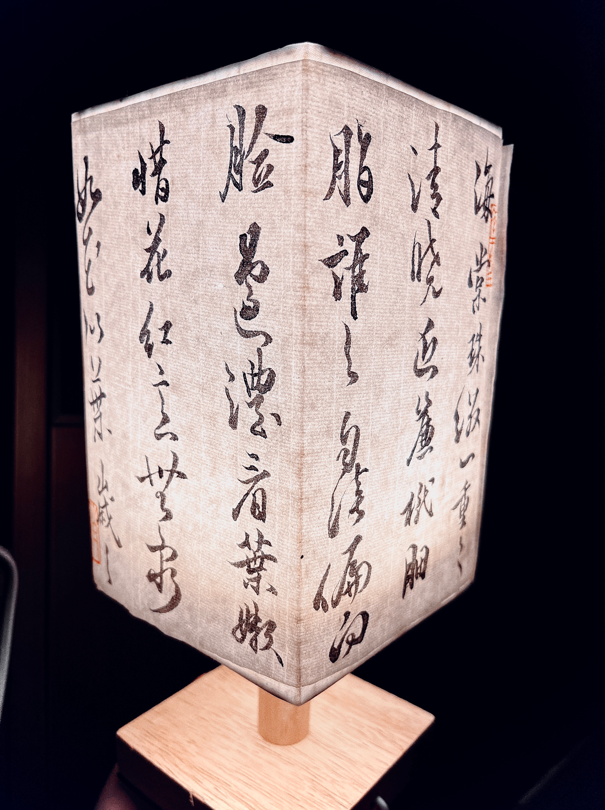 海棠珠綴一重々
清曉近簾櫳胭
脂誰與勻淡偏向
臉邊濃看葉嫩
惜花紅意無窮
如花似葉歲々